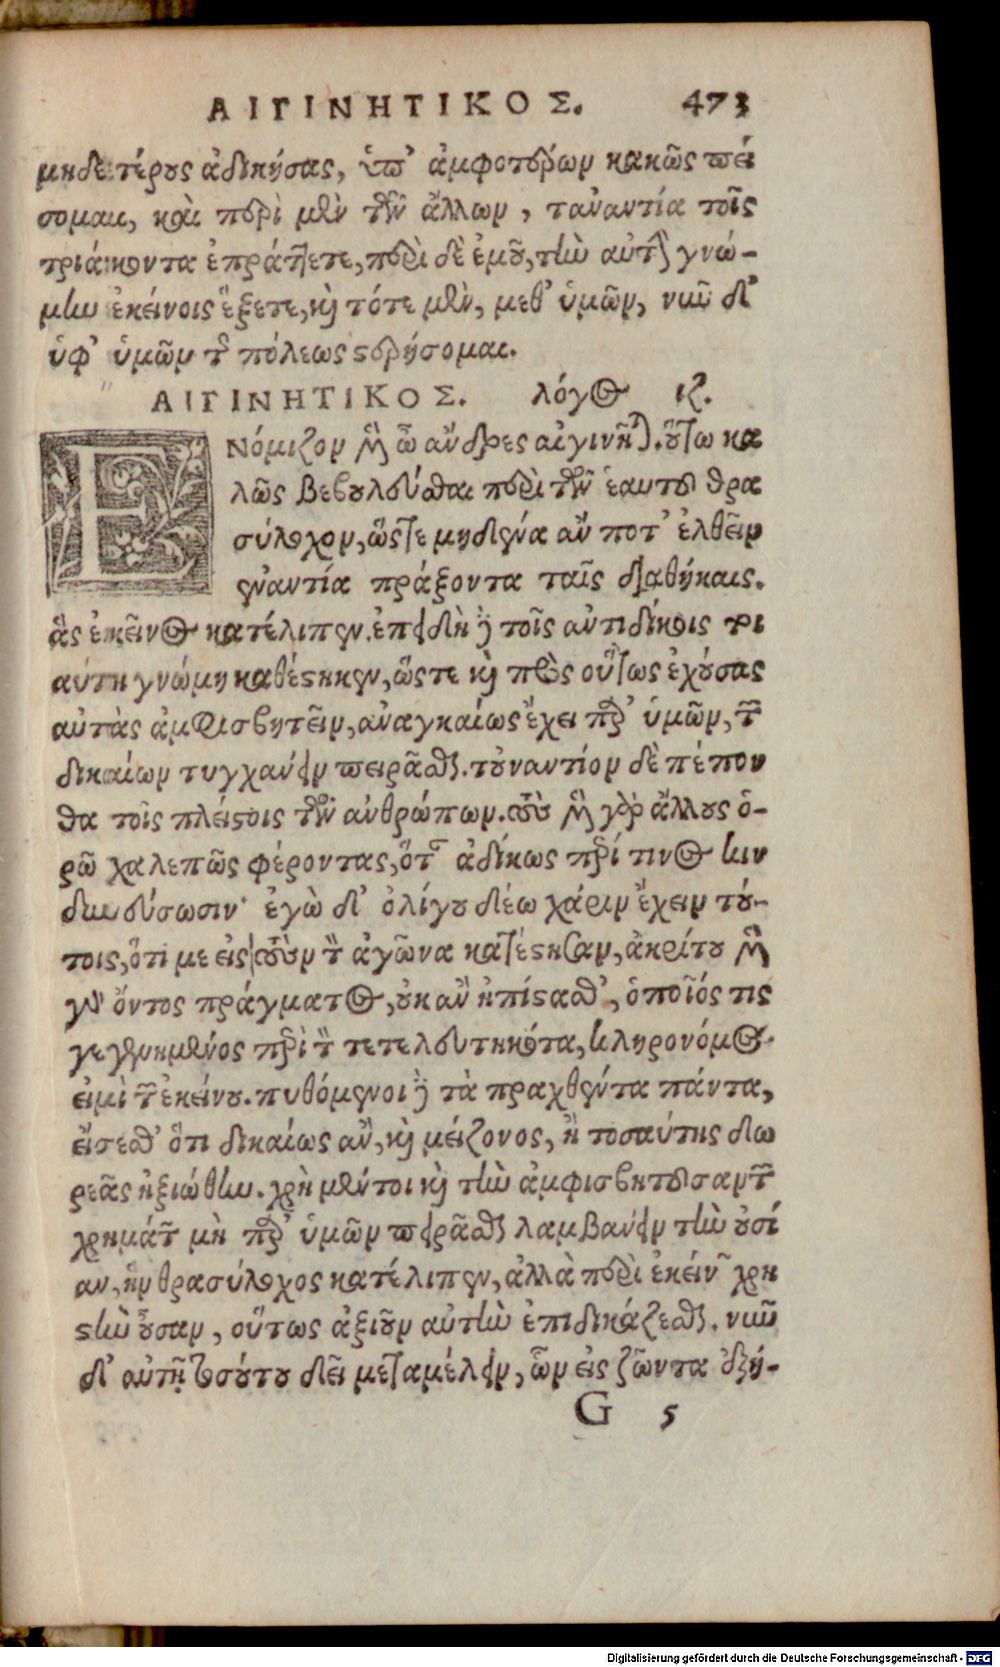 ΑΙΓΙΝΗΤΙΚΟΣ. 473
μηδετέρους ἀδικήσας, ὑπ' ἀμφοτέρων κακῶς πεί
σομαι, καὶ περὶ μὲν τῶν ἄλλων, ταναντία τοῖς
τριάκοντα ἐπράττετε, περὶ δὲ ἐμοῦ, τὴν αὐτὴν γνώ-
μην ἐκείνοις ἕξετε, καὶ τότε μὲν, μεθ' ὑμῶν, νῦν δ'
ὑφ' ὑμῶν τῆς πόλεως στερήσομαι.
ΑΙΓΙΝΗΤΙΚΟΣ. λόγος ιζ.
ΕΝόμιζον μὲν ὦ ἄνδρες αἰγινῆται. οὕτω κα
λῶς βεβουλεῦσθαι περὶ τῶν ἑαυτοῦ θρα
σύλοχον, ὥστε μηδένα ἄν ποτ' ἐλθεῖν
ἐναντία πράξοντα ταῖς διαθήκαις.
ἃς ἐκεῖνος κατέλιπεν. ἐπειδὴ δὲ τοῖς ἀντιδίκοις τοι
αύτη γνώμη καθέστηκεν, ὥστε καὶ πρὸς οὕτως ἐχούσας
αὐτὰς ἀμφισβητεῖν, ἀναγκαίως ἔχει παρ' ὑμῶν, τῶν
δικαίων τυγχάνειν πειρᾶσθαι. τοὐναντίον δὲ πέπον
θα τοῖς πλείστοις τῶν ἀνθρώπων. τοὺς μὲν γὰρ ἄλλους ὁ-
ρῶ χαλεπῶς φέροντας, ὅταν ἀδίκως περί τινος κιν
δυνεύωσιν· ἐγὼ δ' ὀλίγου δέω χάριν ἔχειν τού-
τοις, ὅτι με εἰς τοῦτον τὸν ἀγῶνα κατέστησαν, ἀκρίτου μὲν
γὰρ ὄντος πράγματος, οὐκ ἂν ἠπίστασθ', ὁποῖός τις
γεγενημένος περὶ τὸν τετελευτηκότα, κληρονόμος
εἰμὶ τῶν ἐκείνου. πυθόμενοι δὲ τὰ πραχθέντα πάντα,
εἴσεσθ' ὅτι δικαίως ἂν, καὶ μείζονος, ἢ τοσαύτης δω
ρεᾶς ἠξιώθην. χρὴ μέντοι καὶ τὴν ἀμφισβητοῦσαν τῶν
χρημάτων μὴ παρ' ὑμῶν πειρᾶσθαι λαμβάνειν τὴν οὐσί
αν, ἣν θρασύλοχος κατέλιπεν, ἀλλὰ περὶ ἐκεῖνον χρη
στὴν οὖσαν, οὕτως ἀξιοῦν αὐτὴν ἐπιδικάζεσθαι. νῦν
δ' αὐτῇ τοσούτου δεῖ μεταμέλειν, ὧν εἰς ζῶντα ἐξή-
G 5
Digitalisierung gefördert durch die Deutsche Forschungsgemeinschaft - DFG